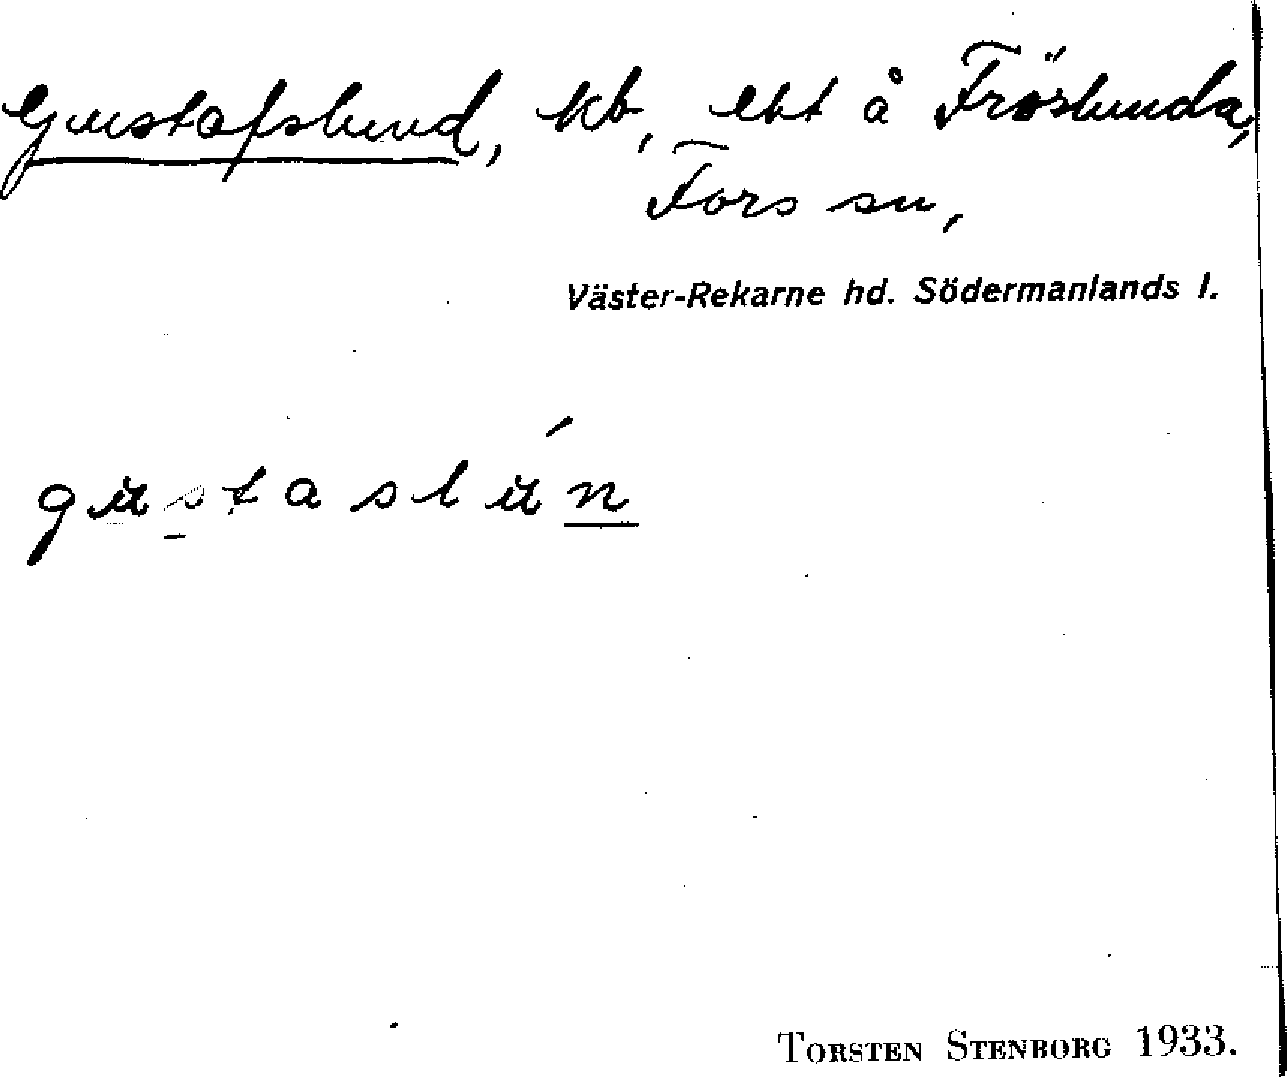 Gustafslund, kb, ekt å Fröslunda,
Fors sn,
Väster-Rekarne hd. Södermanlands l.
gustaslún
TORSTEN STENBORG 1933.